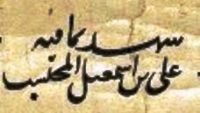 شهد بما فيه
علي بن اسمعيل المحتسب